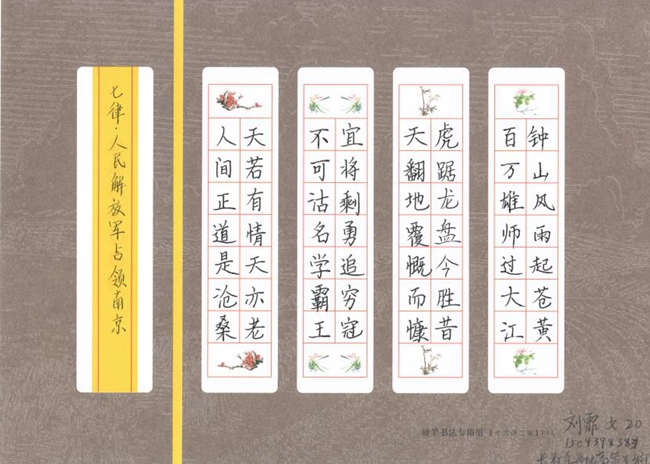 七律·人民解放军占领南京
钟山风雨起苍黄
百万雄师过大江
虎踞龙盘今胜昔
天翻地覆慨而慷
宜将剩勇追穷冠
不可沽名学霸王
天若有情天亦老
人间正道是沧桑
硬笔书法专用纸
刘霏 女 20